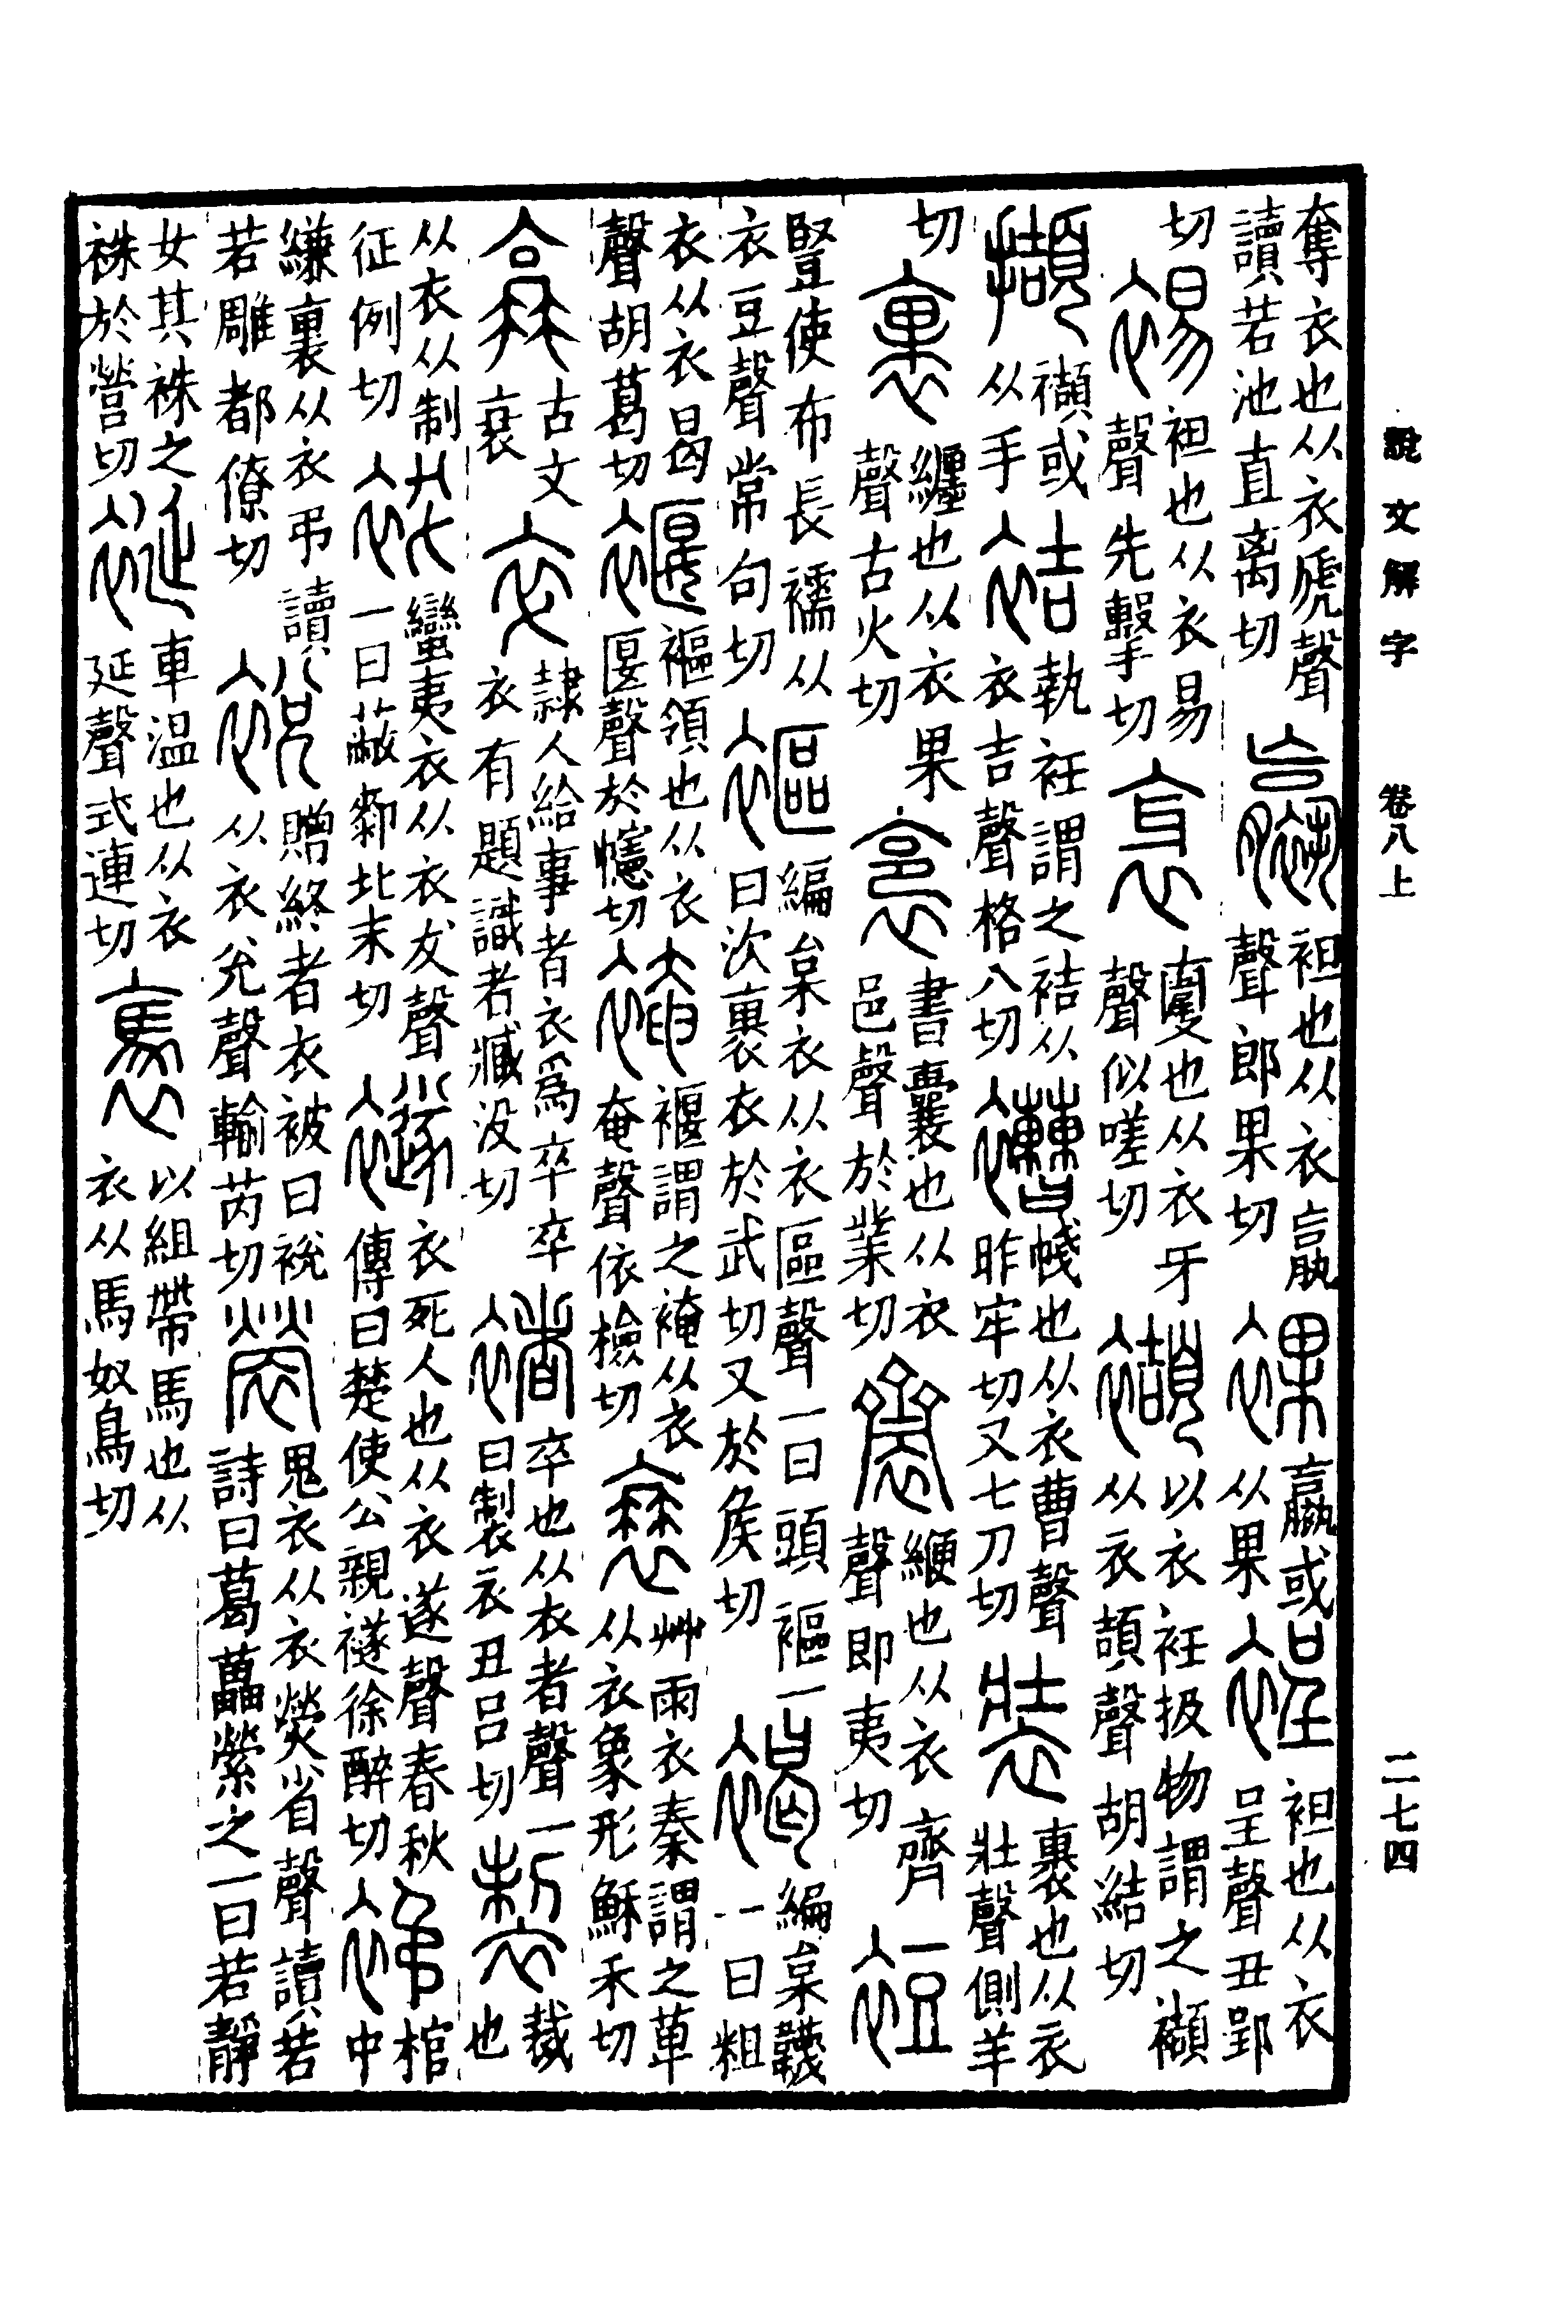 說文解字 卷八上 二七四
奪衣也从衣虒聲讀若池直离切臝袒也从衣𦝠聲郎果切裸臝或从果裎袒也从衣呈聲丑郢
切裼袒也从衣易聲先擊切衺𡕢也从衣牙聲似嗟切襭以衣衽扱物謂之襭从衣頡聲胡結切
擷襭或从手袺執衽謂之袺从衣吉聲格八切褿帴也从衣曹聲昨牢切又七刀切裝裹也从衣壯聲側羊
切裹纏也从衣果聲古火切裛書囊也从衣邑聲於業切齎緶也从衣齊聲即夷切裋
豎使布長襦从衣豆聲常句切䙔編枲衣从衣區聲一曰頭䙔一曰次裹衣於武切又於矦切褐編枲韤一曰粗
衣从衣曷聲胡葛切褗䙔領也从衣匽聲於幰切裺褗謂之裺从衣奄聲依檢切衰艸雨衣秦謂之萆从衣象形穌禾切
𠅞古文衰卒隸人給事者衣爲卒卒衣有題識者臧没切褚卒也从衣者聲一曰製衣丑呂切製裁也
从衣从制征例切袯蠻夷衣从衣犮聲一曰蔽厀北末切襚衣死人也从衣遂聲春秋傳曰楚使公親襚徐醉切棺中
縑裏从衣弔讀若雕都僚切裞贈終者衣被曰裞从衣兊聲輸芮切褮鬼衣从衣熒省聲讀若詩曰葛藟縈之一曰若靜
女其袾之袾於營切梴車温也从衣延聲式連切褭以組帶馬也从衣从馬奴鳥切